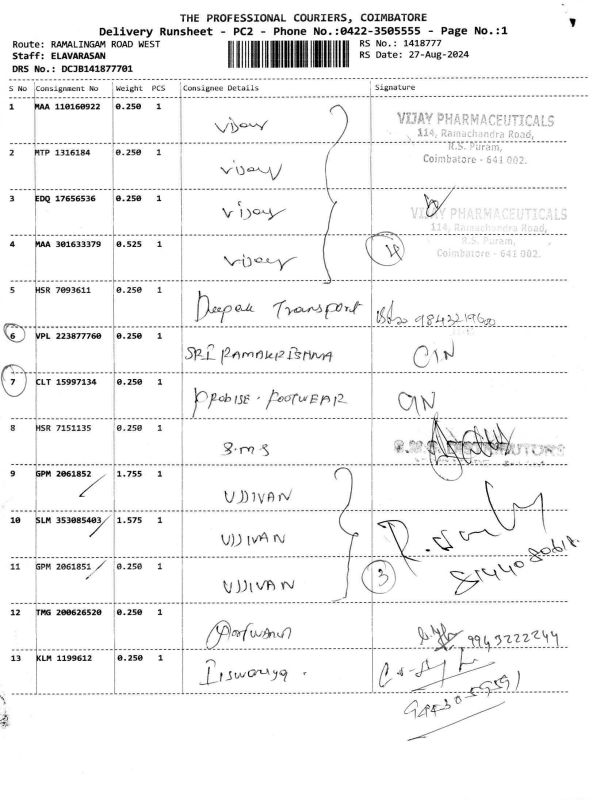 THE PROFESSIONAL COURIERS, COIMBATORE
Delivery Runsheet - PC2 - Phone No.:0422-3505555 - Page No.:1
Route: RAMALINGAM ROAD WEST
RS No.: 1418777
Staff: ELAVARASAN
RS Date: 27-Aug-2024
DRS No.: DCJB141877701
S No Consignment No Weight PCS Consignee Details Signature
1 MAA 110160922 0.250 1 Vijay
VIJAY PHARMACEUTICALS
114, Ramachandra Road,
R.S. Puram,
Coimbatore - 641 002.
2 MTP 1316184 0.250 1 Vijay
3 EDQ 17656536 0.250 1 Vijay
VIJAY PHARMACEUTICALS
114, Ramachandra Road,
R.S. Puram,
Coimbatore - 641 002.
4 MAA 301633379 0.525 1 Vijay 4
5 HSR 7093611 0.250 1 Deepak Transport
6 VPL 223877760 0.250 1 SRI RAMAKRISHNA
7 CLT 15997134 0.250 1
8 HSR 7151135 0.250 1 S.M.S
9 GPM 2061852 1.755 1 UJJIVAN
10 SLM 353085403 1.575 1 UJJIVAN
11 GPM 2061851 0.250 1 UJJIVAN 3
12 TMG 200626520 0.250 1 9943222244
13 KLM 1199612 0.250 1